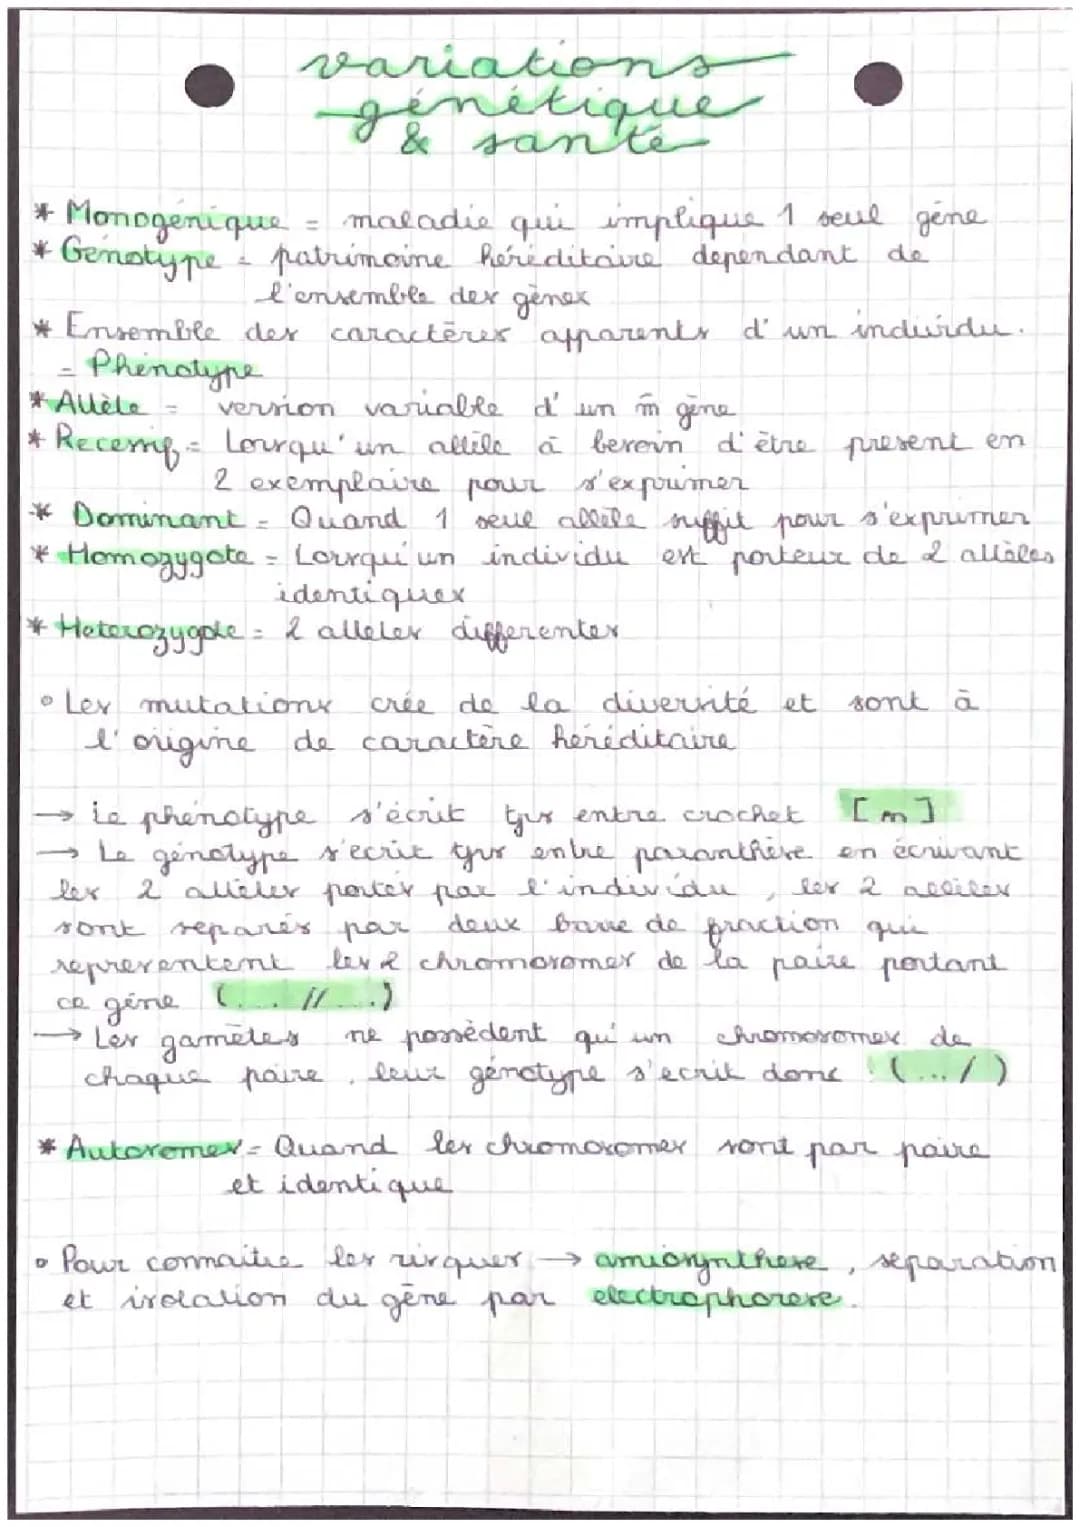 variations
génétique
& santé
* Monogénique = maladie qui implique 1 seul gène
* Génotype = patrimoine héréditaire dependant de
l'ensemble des gènes
* Ensemble des caractères apparents d'un individu.
= Phénotype
* Allèle = version variable d'un m̄ gène
* Recessif = Lorsqu'un allèle à besoin d'être present en
2 exemplaire pour s'exprimer
* Dominant = Quand 1 seul allèle suffit pour s'exprimer
* Homozygote = Lorsqu'un individu est porteur de 2 allèles
identiques
* Heterozygote = 2 alleles differentes
° Les mutations crée de la diversité et sont à
l'origine de caractère héréditaire
→ Le phénotype s'écrit tjrs entre crochet [m]
→ Le génotype s'ecrit tjrs entre paranthèse en écrivant
les 2 allèles portés par l'individu, les 2 allèles
sont separés par deux barre de fraction qui
representent les 2 chromosomes de la paire portant
ce gène (... // ...)
→ Les gamètes ne possèdent qu'un chromosomes de
chaque paire, leur génotype s'ecrit donc : (... / )
* Autosomes = Quand les chromosomes sont par paire
et identique
° Pour connaitre les risques → amiosynthese, séparation
et isolation du gène par electrophorese.